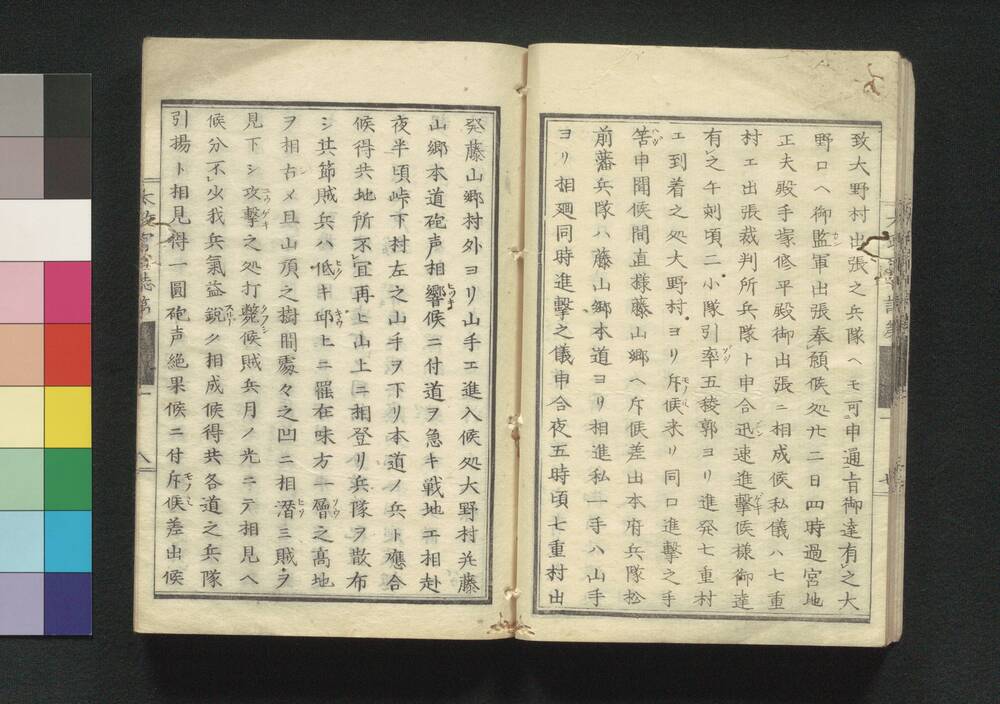 致大野村出張之兵隊ヘモ可申通旨御達有之大
野口ヘ御監軍出張奉願候処廿二日四時過宮地
正夫殿手塚修平殿御出張ニ相成候私儀ハ七重
村エ出張裁判所兵隊ト申合迅速進撃候様御達
有之午刺頃二小隊引率五稜郭ヨリ進発七重村
エ到着之処大野村ヨリ斥候来リ同口進撃之手
筈申聞候間直様藤山郷ヘ斥候差出本府兵隊松
前藩兵隊ハ藤山郷本道ヨリ相進私一手ハ山手
ヨリ相廻同時進撃之儀申合夜五時頃七重村出
発藤山郷村外ヨリ山手エ進入候処大野村并藤
山郷本道砲声相響候ニ付道ヲ急キ戦地エ相赴
夜半頃峠下村左之山手ヲ下リ本道ノ兵ト應合
候得共地所不宜再ヒ山上ニ相登リ兵隊ヲ散布
シ其節賊兵ハ低キ邱上ニ罷在味方一層之高地
ヲ相占メ且山頂之樹間處々之凹ニ相潜ミ賊ヲ
見下シ攻撃之処打斃候賊兵月ノ光ニテ相見ヘ
候分不少我兵氣益鋭ク相成候得共各道之兵隊
引揚ト相見得一圓砲声絶果候ニ付斥候差出候